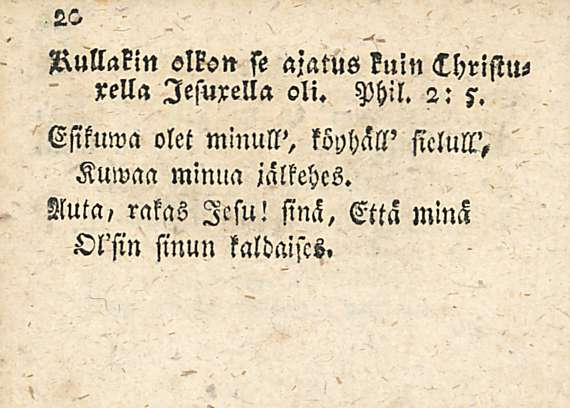 26
Kullakin olkon se ajatus kuin Christu⸗
xella Jesuxella oli. Phil. 2: 5.
Esikuwa olet minull', köyhäll' sielull',
Kuwaa minua jälkehes.
Auta, rakas Jesu! sinä, Että minä
Ol'sin sinun kaldaises.